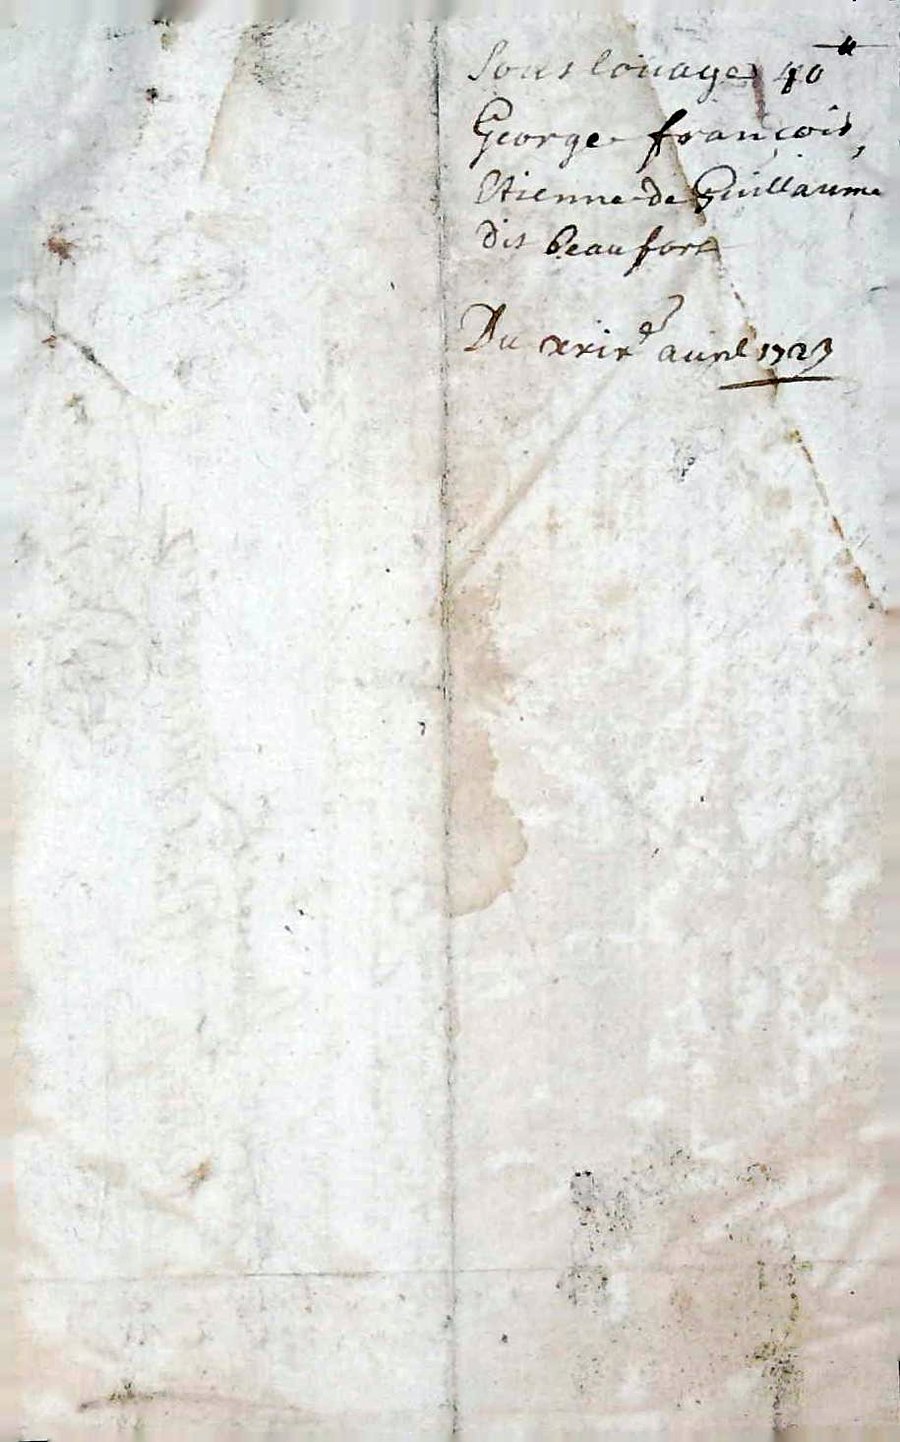 Sous louage 40 ₶
George françois,
Etienne de Guillaume
dit beaufort
Du xxixe auril 1723